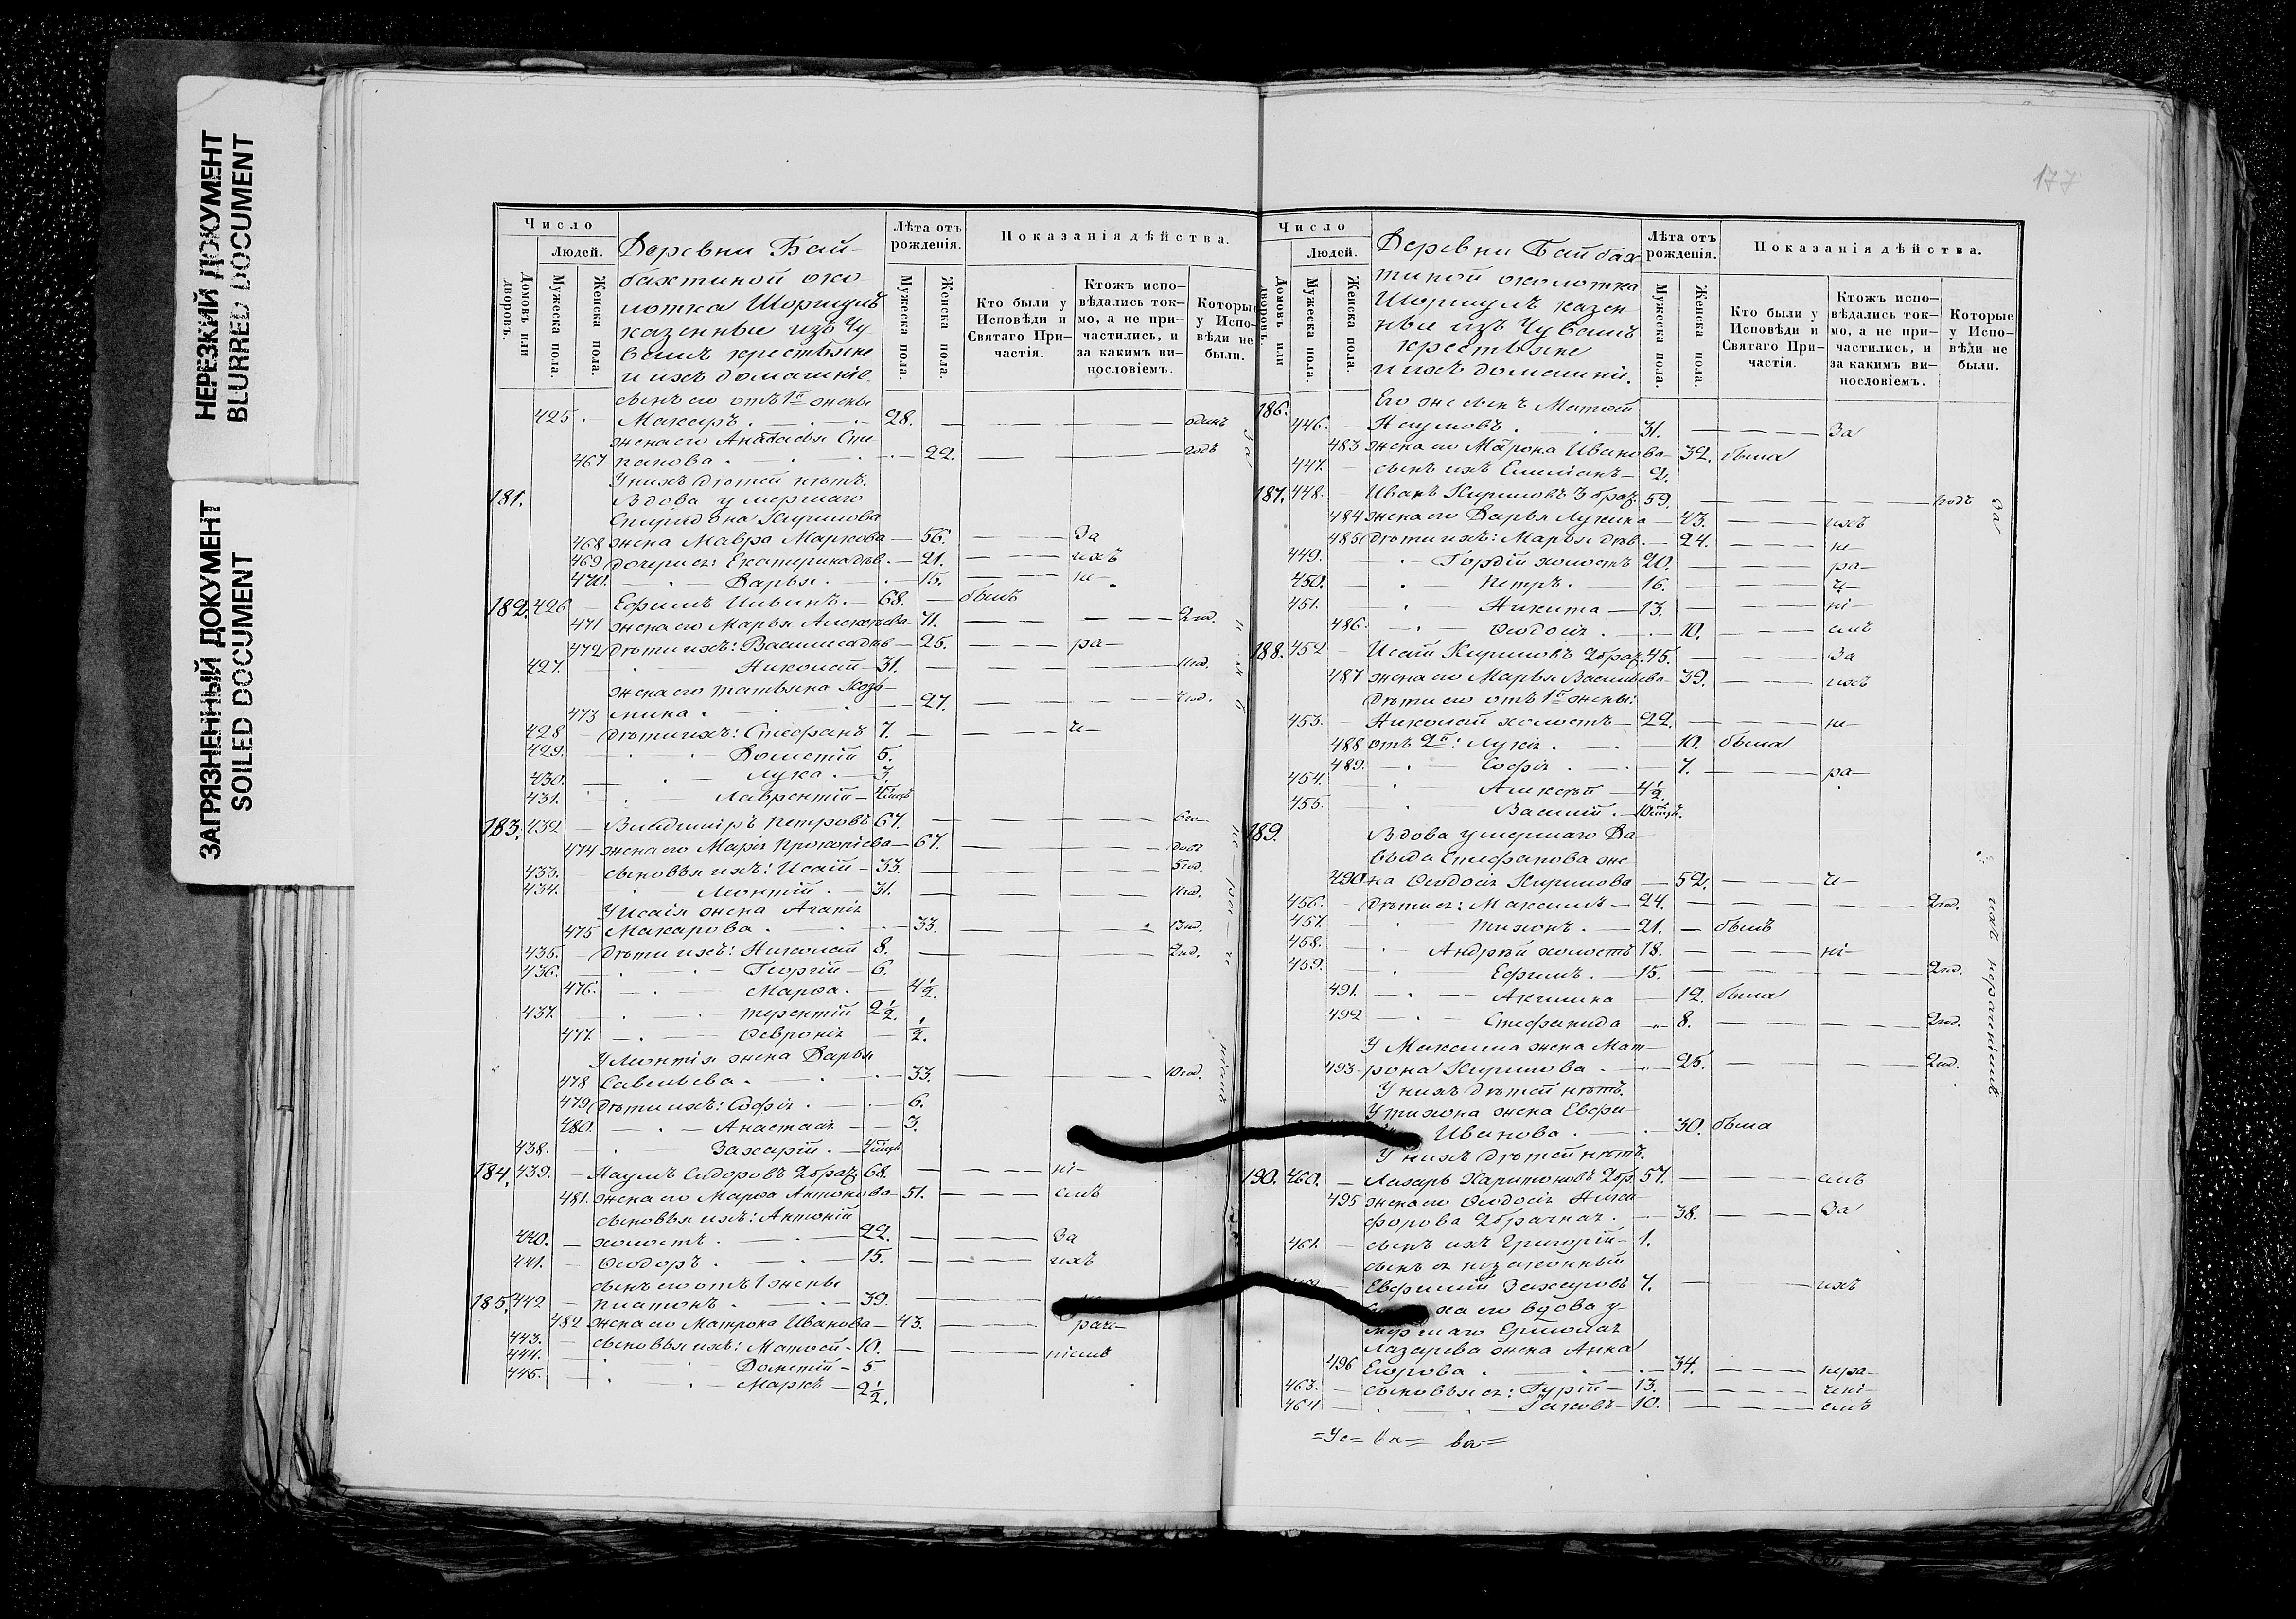 НЕРЕЗКИЙ ДОКУМЕНТ
BLURRED DOCUMENT
ЗАГРЯЗНЕННЫЙ ДОКУМЕНТ
SOILED DOCUMENT
Число
Людей.
Домовъ или дворовъ.
Мужеска пола.
Женска пола.
Деревни Бай-
бахтиной око
лотка Шоркулъ
казенные изъ Чу
вашъ крестьяне
и ихъ домашніе.
Лѣта отъ рожденія.
Мужеска пола.
Женска пола.
Показанія дѣйства.
Кто были у Исповѣди и Святаго Причастія.
Ктожъ исповѣдались токмо, а не причастились, и за какимъ винословіемъ.
Которые у Исповѣди не были.
сынъ его отъ 1й жены
425 Макаръ 28. одинъ
жена его Сте
467 панова 22. годъ
У нихъ дѣтей нѣтъ.
181. Вдова умершаго
Спиридона Кирилова
468 жена Мавра Маркова 56. За
469 дочери ея: Екатерина дѣв. 21. ихъ
470. Дарья 15. не-
182. 426 Ефимъ Ильинъ 68. былъ
471 жена его Марья Алексѣева 71. 2 год.
472 дѣти ихъ: Василиса дѣв 25. ра-
427. Николай 31. 1 год.
жена его Татьяна Козь-
473 мина 27. 4 год.
428 дѣти ихъ: Стефанъ 7. ч-
429. Дометій 5.
430. Лука 3.
431. Лаврентій
183. 432 Владиміръ Петровъ 67. 6 го-
474 жена его Марія Прокопіева 67. довъ
433. сыновья ихъ: Исай 33. 5 год.
434. Леонтій 31. 1 год.
У Исаія жена Агапія
475 Макарова 33. 13 год.
435. дѣти ихъ: Николай 8. 2 год.
436. Георгій 6.
476. Марѳа 4½.
437. Терентій 2½.
477. Февронія ½.
У Леонтія жена Дарья
478 Савельева 33. 10 год.
479 дѣти ихъ: Софія 6.
480. Анастасія 3.
438. Захарій
184. 439. Наумъ Сидоровъ 2 брач. 68. ні-
481. жена его Марѳа Антонова 51. емъ
сыновья ихъ: Антоній
440. холостъ 22. За
441. Ѳеодоръ 15. ихъ
сынъ его отъ 1 жены
185. 442 Платонъ 39.
482 жена его Матрона Иванова 43. рач-
443. сыновья ихъ: Матвей 10. ніемъ
444. Дометій 5.
445. Маркъ 2½.
177
Число
Людей.
Домовъ или дворовъ.
Мужеска пола.
Женска пола.
Деревни Байбах
тиной околотка
Шоркулъ казен
ные изъ Чувашъ
крестьяне
и ихъ домашніе.
Лѣта отъ рожденія.
Мужеска пола.
Женска пола.
Показанія дѣйства.
Кто были у Исповѣди и Святаго Причастія.
Ктожъ исповѣдались токмо, а не причастились, и за какимъ винословіемъ.
Которые у Исповѣди не были.
186. Его же сынъ Матвей
446. Наумовъ 31. За
483 жена его Матрона Иванова 32. была
447. сынъ ихъ Емиліанъ 2.
187. 448. Иванъ Кириловъ 3 брач. 59. годъ
484 жена его Дарья Лукина 43. ихъ
485 дѣти ихъ: Марья дѣв. 24. не-
449. Гордій холостъ 20. ра-
450. Петръ 16. ч-
451. Никита 13. ні-
486. Ѳеодосія 10. емъ
188. 452 Исай Кириловъ 2 брач. 45. За
487 жена его Марья Васильева 39. ихъ
дѣти его отъ 1й жены:
453. Николай холостъ 22. не-
488 отъ 2й: Лукія 10. была
489. Софія 7. ра-
454. Алексѣй 4½.
455. Василій
189. Вдова умершаго Да
выда Стефанова же
490. на Ѳеодосія Кирилова 52. ч-
456. дѣти ея: Максимъ 24. 2 год.
457. Тихонъ 21. былъ
458. Андрей холостъ 18. ні-
459. Ефимъ 15. 2 год.
491. Акилина 12. была
492 Стефанида 8. 2 год.
У Максима жена Мат-
493 рона Кирилова 25. 2 год.
У нихъ дѣтей нѣтъ.
У Тихона жена Евфи-
Иванова 30. была
У нихъ дѣтей нѣтъ.
190. 460. Лазарь Харитоновъ 2 бр. 57. емъ
495 жена его Ѳеодосія Ники
форова 2 брачная 38. За
461. сынъ ихъ Григорій 1.
сынъ ея незаконный
Евфимій Захаровъ 7. ихъ
ха его вдова у-
мершаго Ермолая
Лазарева жена Анна
496 Егорова 34. нера-
463. сыновья ея: Гурій 13. чні-
464 Іаковъ 10. емъ
За ихъ нераченіемъ